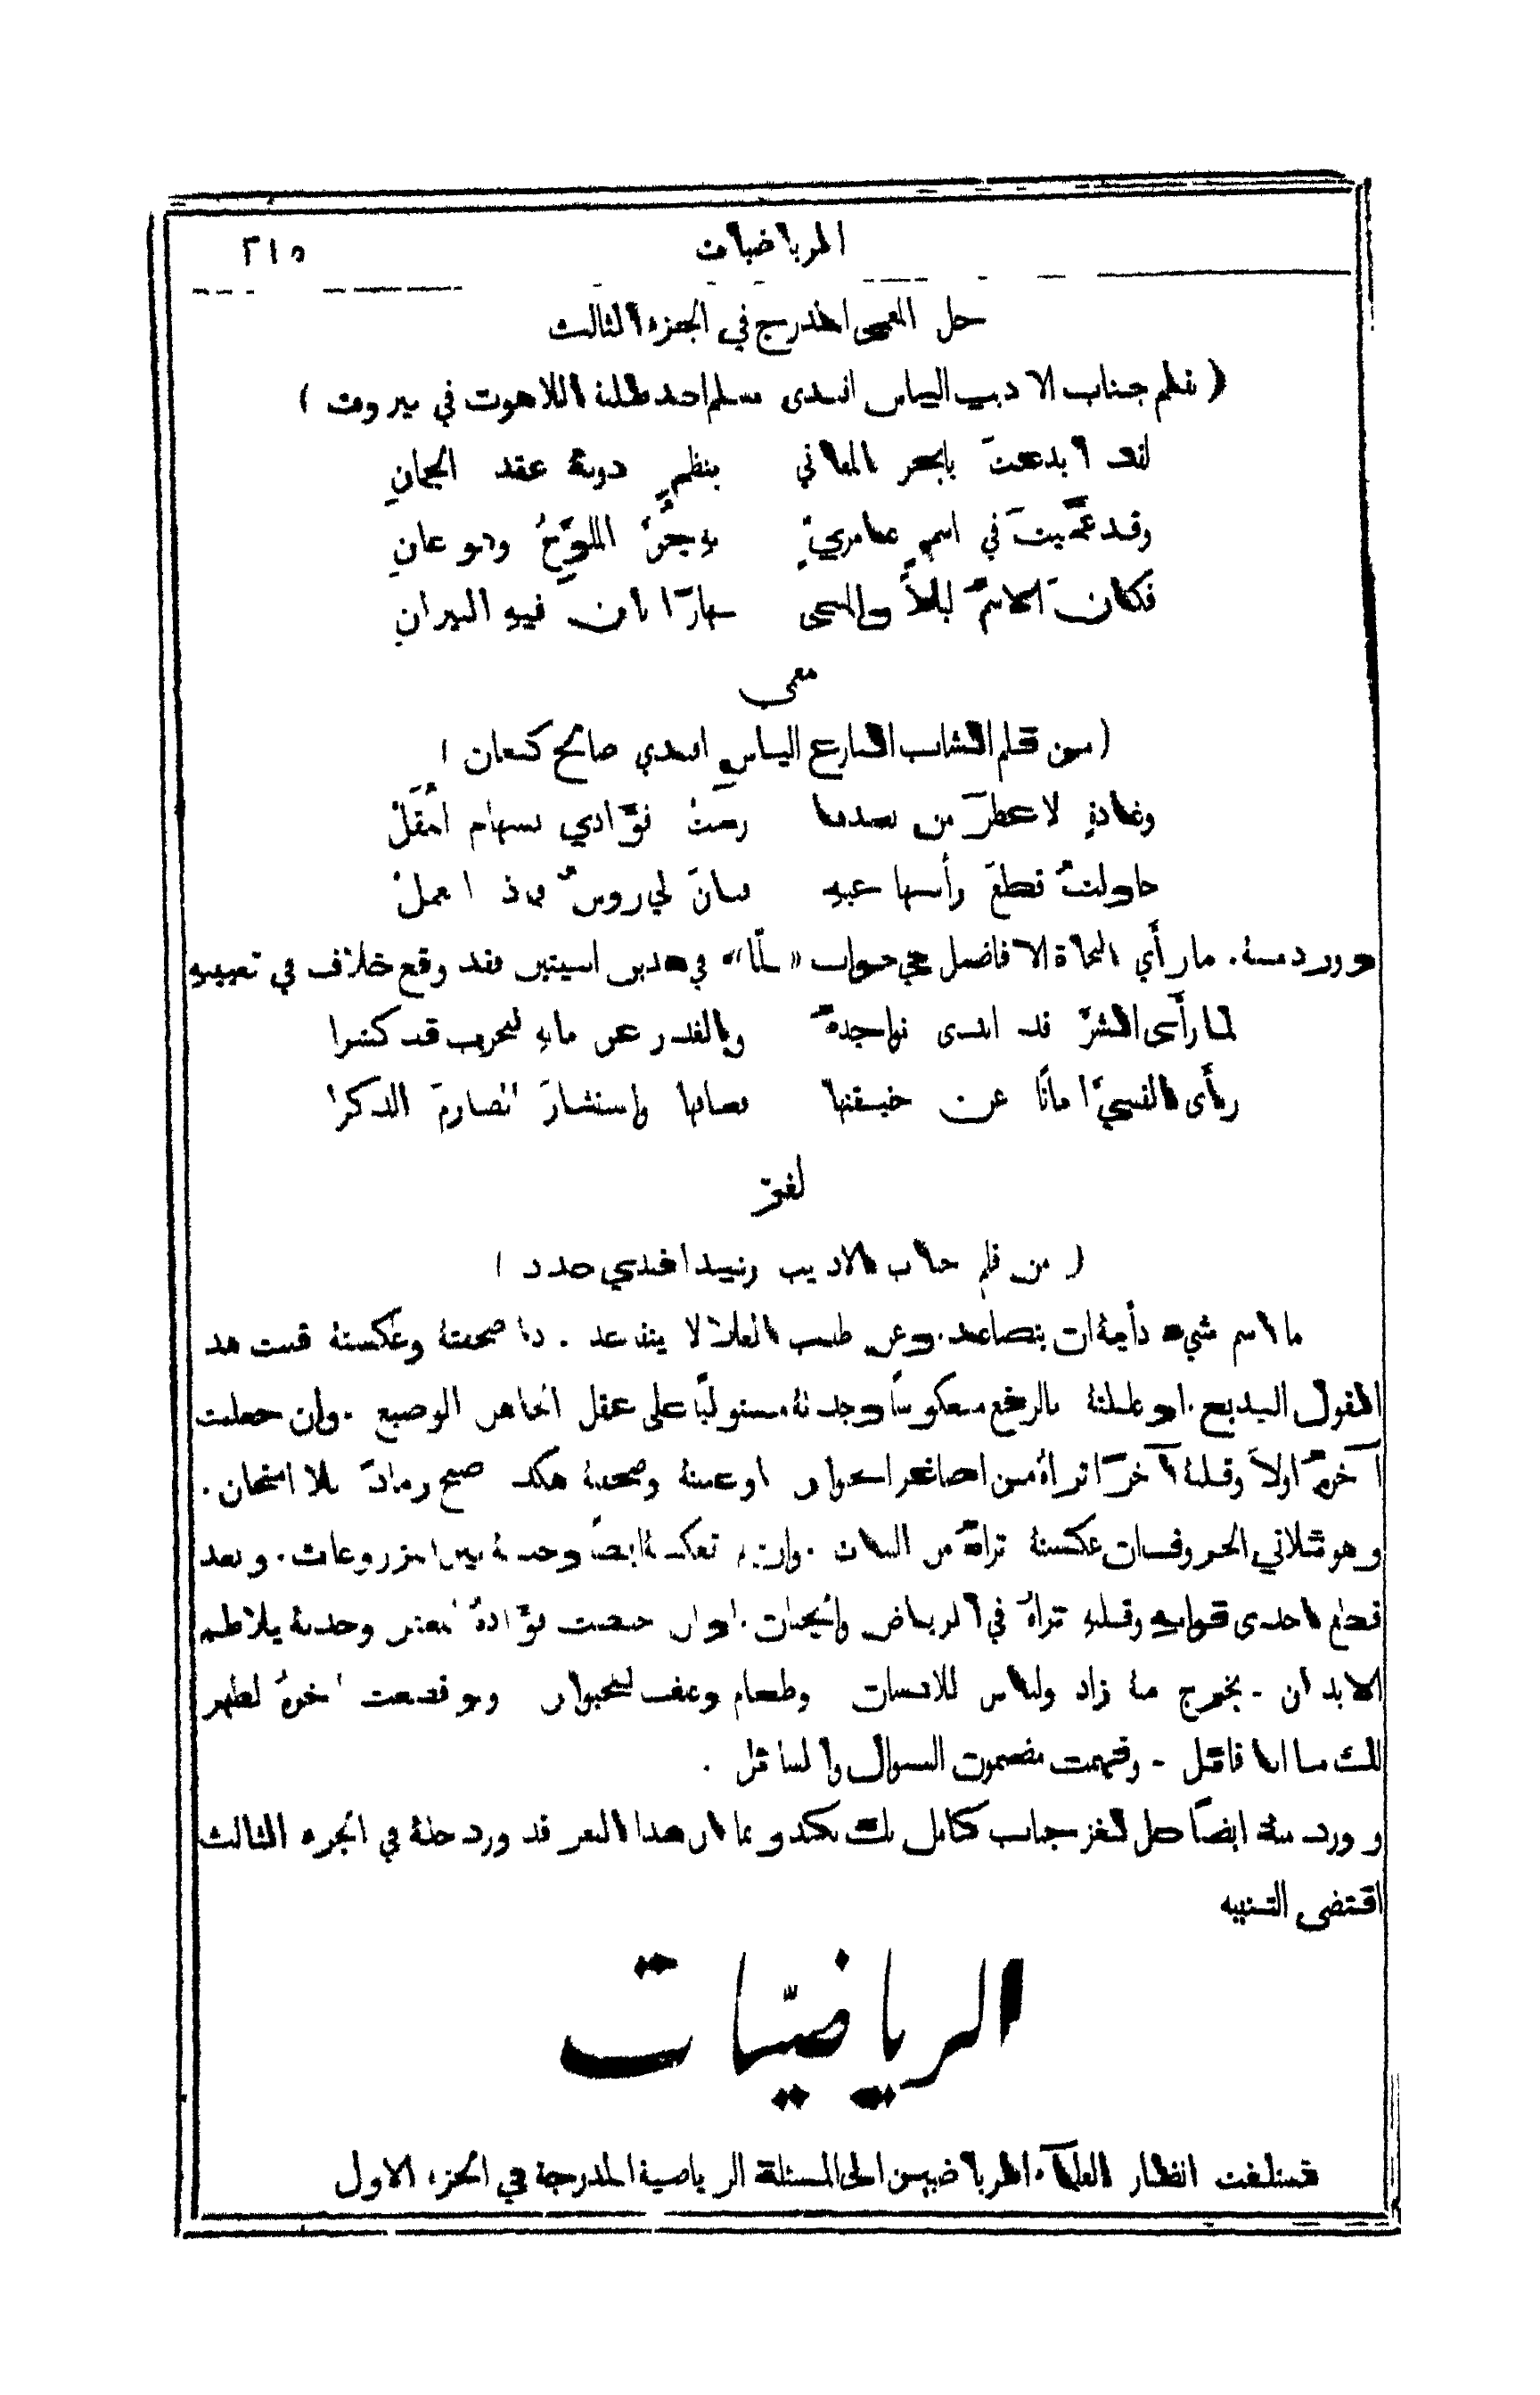 الرياضيات ٢١٥
حل المعمى المدرج في الجزء الثالث
( بقلم جناب الاديب الياس افندي مسلم احد طلبة اللاهوت في بيروت )
لقد ابدعتَ يا بحر المعاني بنظمٍ دونهُ عقد الجمانِ
وقد عمَّيتَ في اسمٍ عامريٍّ بهِ جُنَّ الملوَّحُ وهو عانِ
فكان الاسمُ ليلاً والمعمى نهارًا بان فيهِ النيرانِ
معمى
( من قلم الشاب البارع الياس افندي صالح كنعان )
وغادةٍ لا عطرَ من بعدها رمتْ فوَّادي بسهام المُقَلْ
حاولتُ قطعَ رأسها عبرة فبانَ لي روسٌ فماذا العملْ
وورد منهُ. ما رأي النحاة الافاضل في جواب «لمَّا» في هذين البيتين فقد وقع خلاف في تعيينهِ
لما رأى الشرَّ قد ابدى نواجذهُ والغدر عن نابهِ للحرب قد كشرا
رأى القسيَّ اناثًا عن حقيقتها فعافها واستشارَ الصارمَ الذكرا
لغز
( من قلم جناب الاديب رشيد افندي حداد )
ما اسم شيء دأبهُ ان يتصاعد. وعن طلب العلا لا يتقاعد. اذا صحفتهُ وعكستهُ قلت هذا
القول البديع. او قلبتهُ بالرفع معكوسًا وجدتهُ مستوليًا على عقل الجاهل الوضيع. وان جعلت
آخرهُ اولاً وقلبهُ آخرًا تراهُ من اصاغر الحيوان او عينهُ وصحفتهُ هكذا صح رمادًا بلا امتحان.
وهو ثلاثي الحروف فان عكستهُ تراهُ من النبات. وان لم تعكسهُ ايضًا وجدتهُ بين المزروعات. وبعد
قطع احدى قوايمهِ وقلبهِ تراهُ في الرياض والجنات. او ان حذفت فوَّادهُ المعتبر وجدتهُ يلاطم
الابدان - يخرج منهُ زاد ولباس للانسان وطعام وعلف للحيوان ولو قطعت اخرهُ لظهر
لك ما انا قائل - وفهمت مضمون السوال والسائل .
وورد منهُ ايضًا حل لغز جناب كامل بك بكد وبما ان هذا اللغز قد ورد حلهُ في الجزء الثالث
اقتضى التنبيه
الرياضيّات
قد تلفت انظار العلماء الرياضيين الى المسئلة الرياضية المدرجة في الجزء الاول